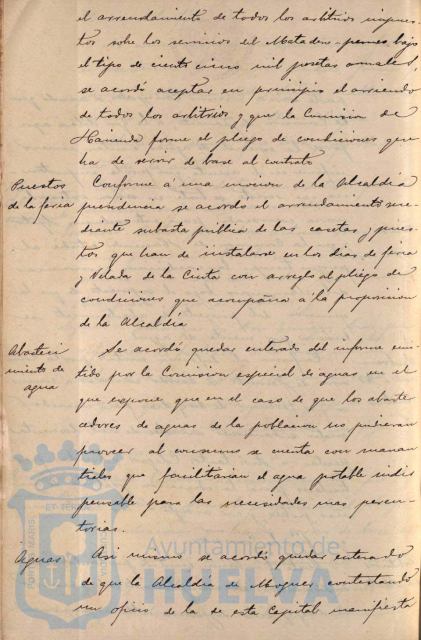 el arrendamiento de todos los arbitrios impues-
tos sobre los servicios del Matadero - pemes, bajo
el tipo de ciento cinco mil pesetas anuales,
se acordó aceptar en principio el arriendo
de todos los arbitrios y que la Comision de
Hacienda forme el pliego de condiciones que
ha de servir de base al contrato
Puestos de la feria
Conforme á una mocion de la Alcaldia
presidencia se acordó el arrendamiento me-
diante subasta publica de las casetas y pues-
tos que han de instalarse en los dias de feria
y Velada de la Cinta con arreglo al pliego de
condiciones que acompaña á la proposicion
de la Alcaldia
Abasteci
miento de
agua
Se acordó quedar enterado del informe emi-
tido por la Comision especial de aguas en el
que expone que en el caso de que los abaste
cedores de aguas de la poblacion no pudieran
proveer al consumo se cuenta con manan
tiales que facilitarian el agua potable indis
pensable para las necesidades mas peren-
torias.
Aguas
Asi mismo se acordó quedar enterado
de que la Alcaldia de Moguer contestando
un oficio de la de esta Capital manifiesta
Ayuntamiento de
HUELVA